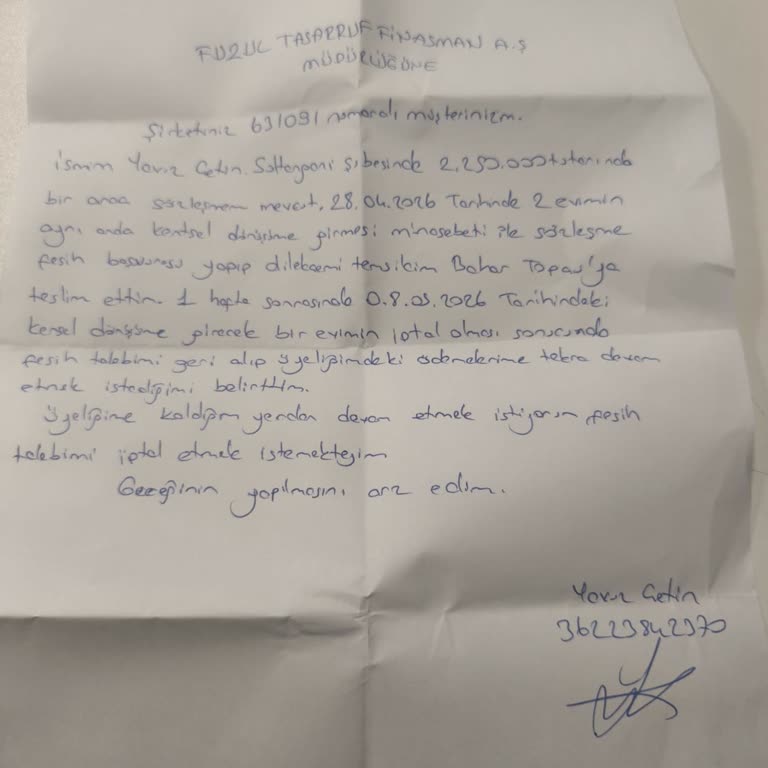 FUZUL TASARRUF FİNASMAN A.Ş
MÜDÜRLÜĞÜNE
Şirketiniz 631091 numaralı müşterinizm.
ismim Yavuz Çetin. Sultanğazi Şubesinde 2.250.000 tutarında
bir adet sözleşmem mevcut, 28.04.2026 Tarihinde 2 evimin
aynı anda kentsel dönüşüme girmesi münasebeti ile sözleşme
fesih başvurusu yapıp dilekcemi temsilcim Bahar Topau'ya
teslim ettim. 1 hafta sonrasında 0.8.05.2026 Tarihindeki
kensel dönüşüme girecek bir evimin iptal olması sonucunda
fesih talebimi geri alıp üyeliğimdeki ödemelerime tekra devam
etmek istediğimi belirttim.
Üyeliğime kaldığım yerden devam etmek istiyorum fesih
talebimi iptal etmek istemekteyim
Gereğinin yapılmasını arz edim.
Yavuz Çetin
36223842970